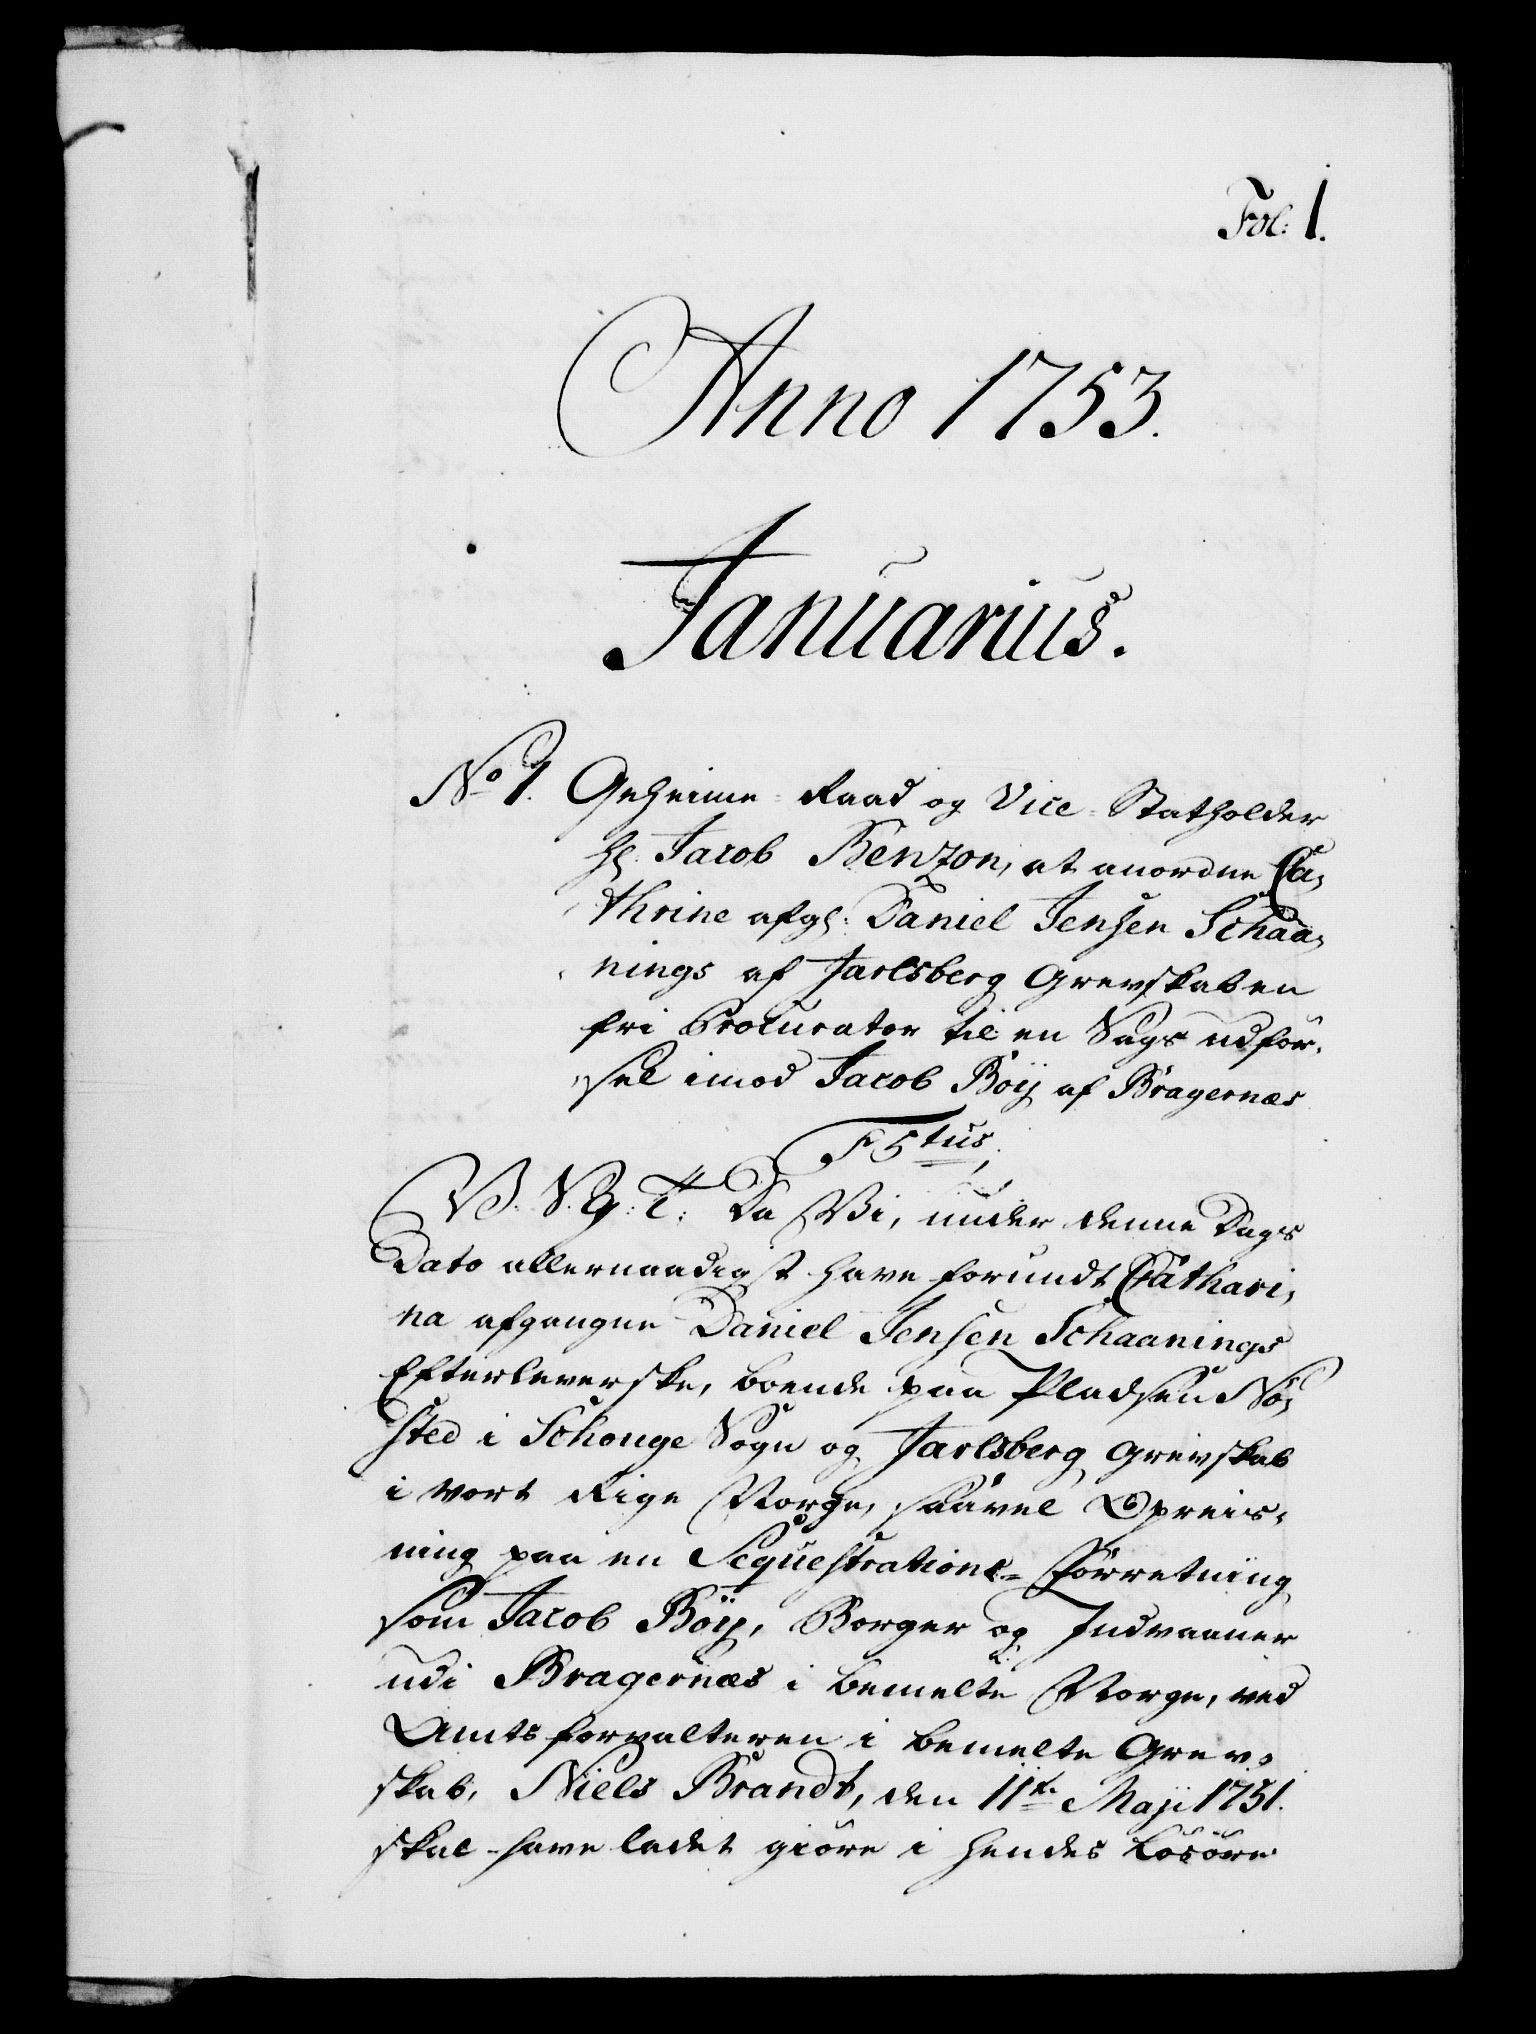 Fol: 1.
Anno 1753.
Januarius.
No 1. Geheime-Raad og Vice-Statholder
Hr. Jacob Benzon, at anordne Ca,
thrine afgl: Daniel Jensen Schaa,
nings af Jarlsberg Grevskab en
fri Procurator til en Sags udför,
sel imod Jacob Böÿ af Bragernæs
F 5tus,
V. S. G. T: Da Vi, under denne Dags
Dato allernaadigst have forundt Cathari,
na afgangne Daniel Jensen Schaanings
Efterleverske, boende paa Pladsen Nö,
sted i Schouge Sogn og Jarlsberg Grevskab
i vort Rige Norge, saavel Opreis,
ning paa en Sequestrations-Forretning
som Jacob Böÿ, Borger og Indvaaner
udi Bragernæs i bemelte Norge, ved
Amtsforvalteren i bemelte Grev,
skab, Niels Brandt, den 11te Maji 1751.
skal have ladet giöre i hendes Lösöre